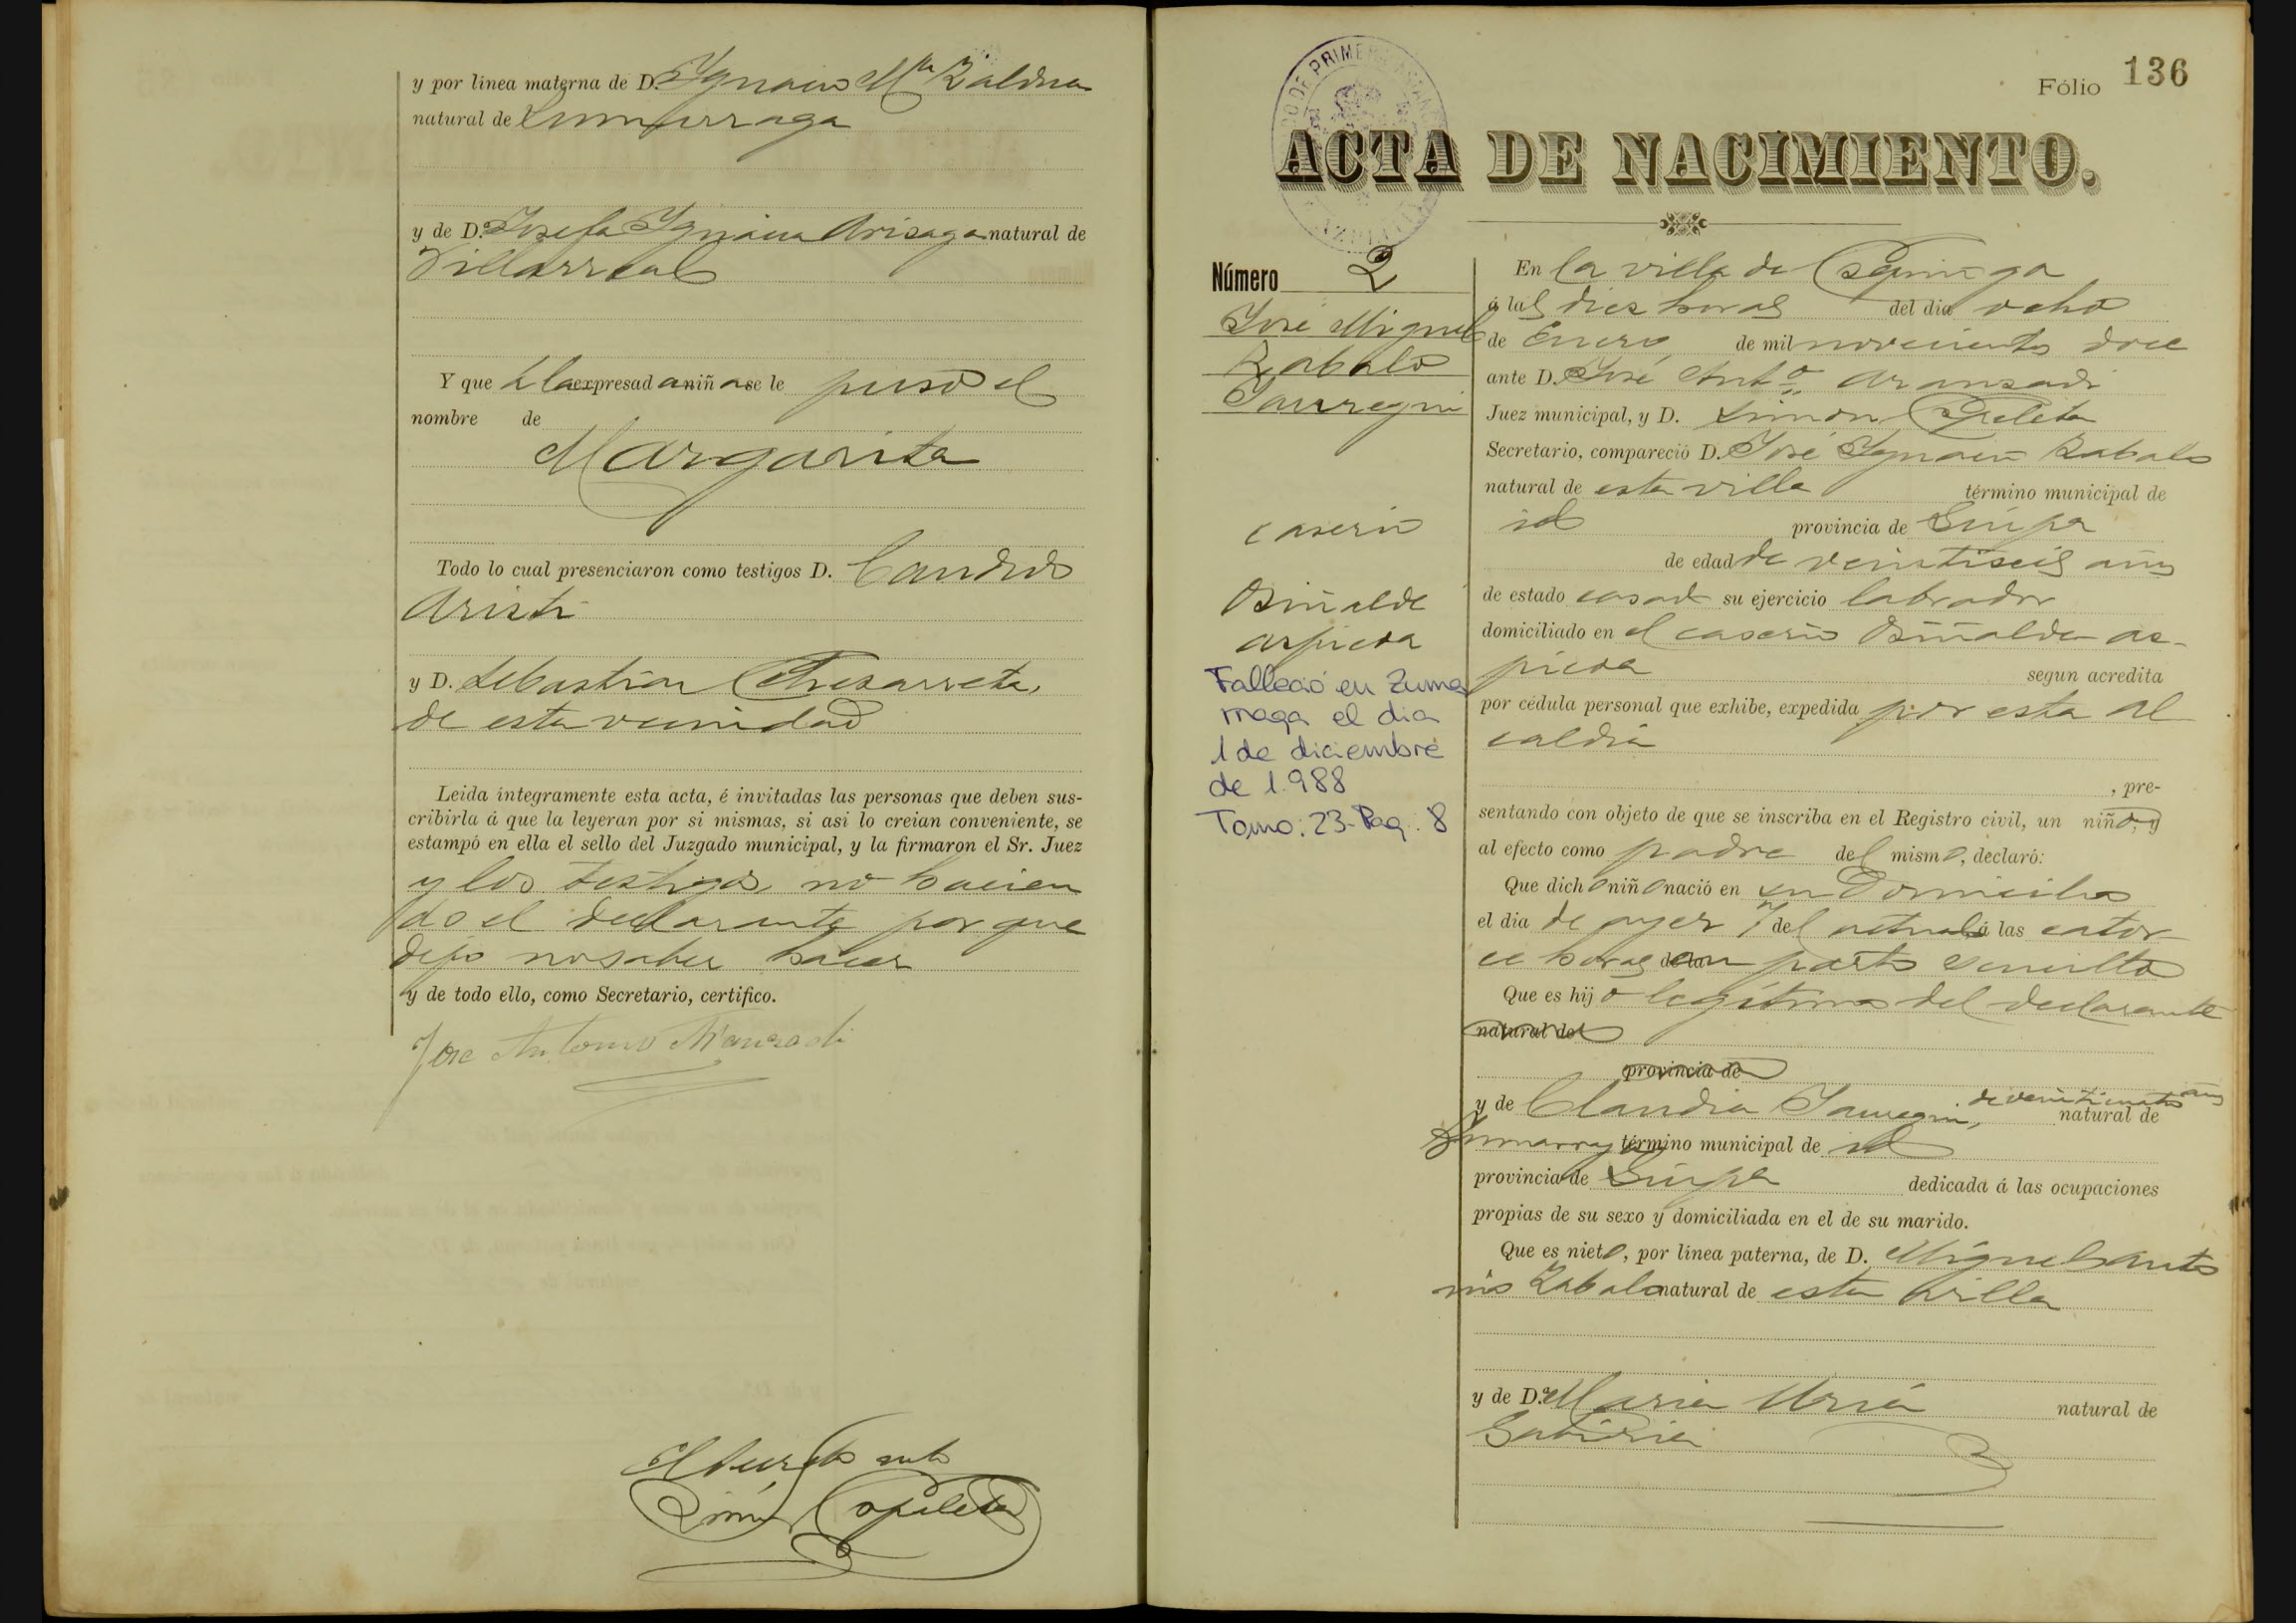 y por línea materna de D. Ygnacio Mª Zaldua
natural de Zumarraga
y de D.ª Josefa Ygnacia Arisaga natural de
Villarreal
Y que a la expresada niña se le puso el
nombre de
Margarita
Todo lo cual presenciaron como testigos D. Candido
Aristi
y D. Sebastian
de esta vecindad
Leida íntegramente esta acta, é invitadas las personas que deben sus-
cribirla á que la leyeran por si mismas, si asi lo creian conveniente, se
estampó en ella el sello del Juzgado municipal, y la firmaron el Sr. Juez
y los testigos, no hacien
do el declarante por que
dijo no saber hacer
y de todo ello, como Secretario, certifico.
Jose Antonio Aranzadi
Simon
Fólio 136
ACTA DE NACIMIENTO.
Número 2
José Miguel
Zabalo
Jauregui
caserio
Falleció en Zuma
rraga el dia
1 de diciembre
de 1.988
Tomo: 23-Pag.: 8
En la villa de Ezquioga
á las diez horas del dia ocho
de Enero de mil novecientos doce
ante D. José Antº Aranzadi
Juez municipal, y D. Simon
Secretario, compareció D. José Ygnacio Zabalo
natural de esta villa término municipal de
id provincia de Guipa
de edad de veintiseis años
de estado casado su ejercicio labrador
domiciliado en el caserio
segun acredita
por cédula personal que exhibe, expedida por esta Al
caldia
, pre-
sentando con objeto de que se inscriba en el Registro civil, un niño, y
al efecto como padre del mismo, declaró:
Que dicho niño nació en su Domicilio
el dia de ayer 7 del actual á las cator
ce horas de la en parto sencillo
Que es hijo legitimo del declarante
natural de
provincia de
y de Claudia Jauregui, de veinticuatro años natural de
Zumarraga término municipal de id
provincia de Guipa dedicada á las ocupaciones
propias de su sexo y domiciliada en el de su marido.
Que es nieto, por línea paterna, de D. Miguel Anto
nio Zabalo natural de esta villa
y de D.ª Maria Uria natural de
Gabiria